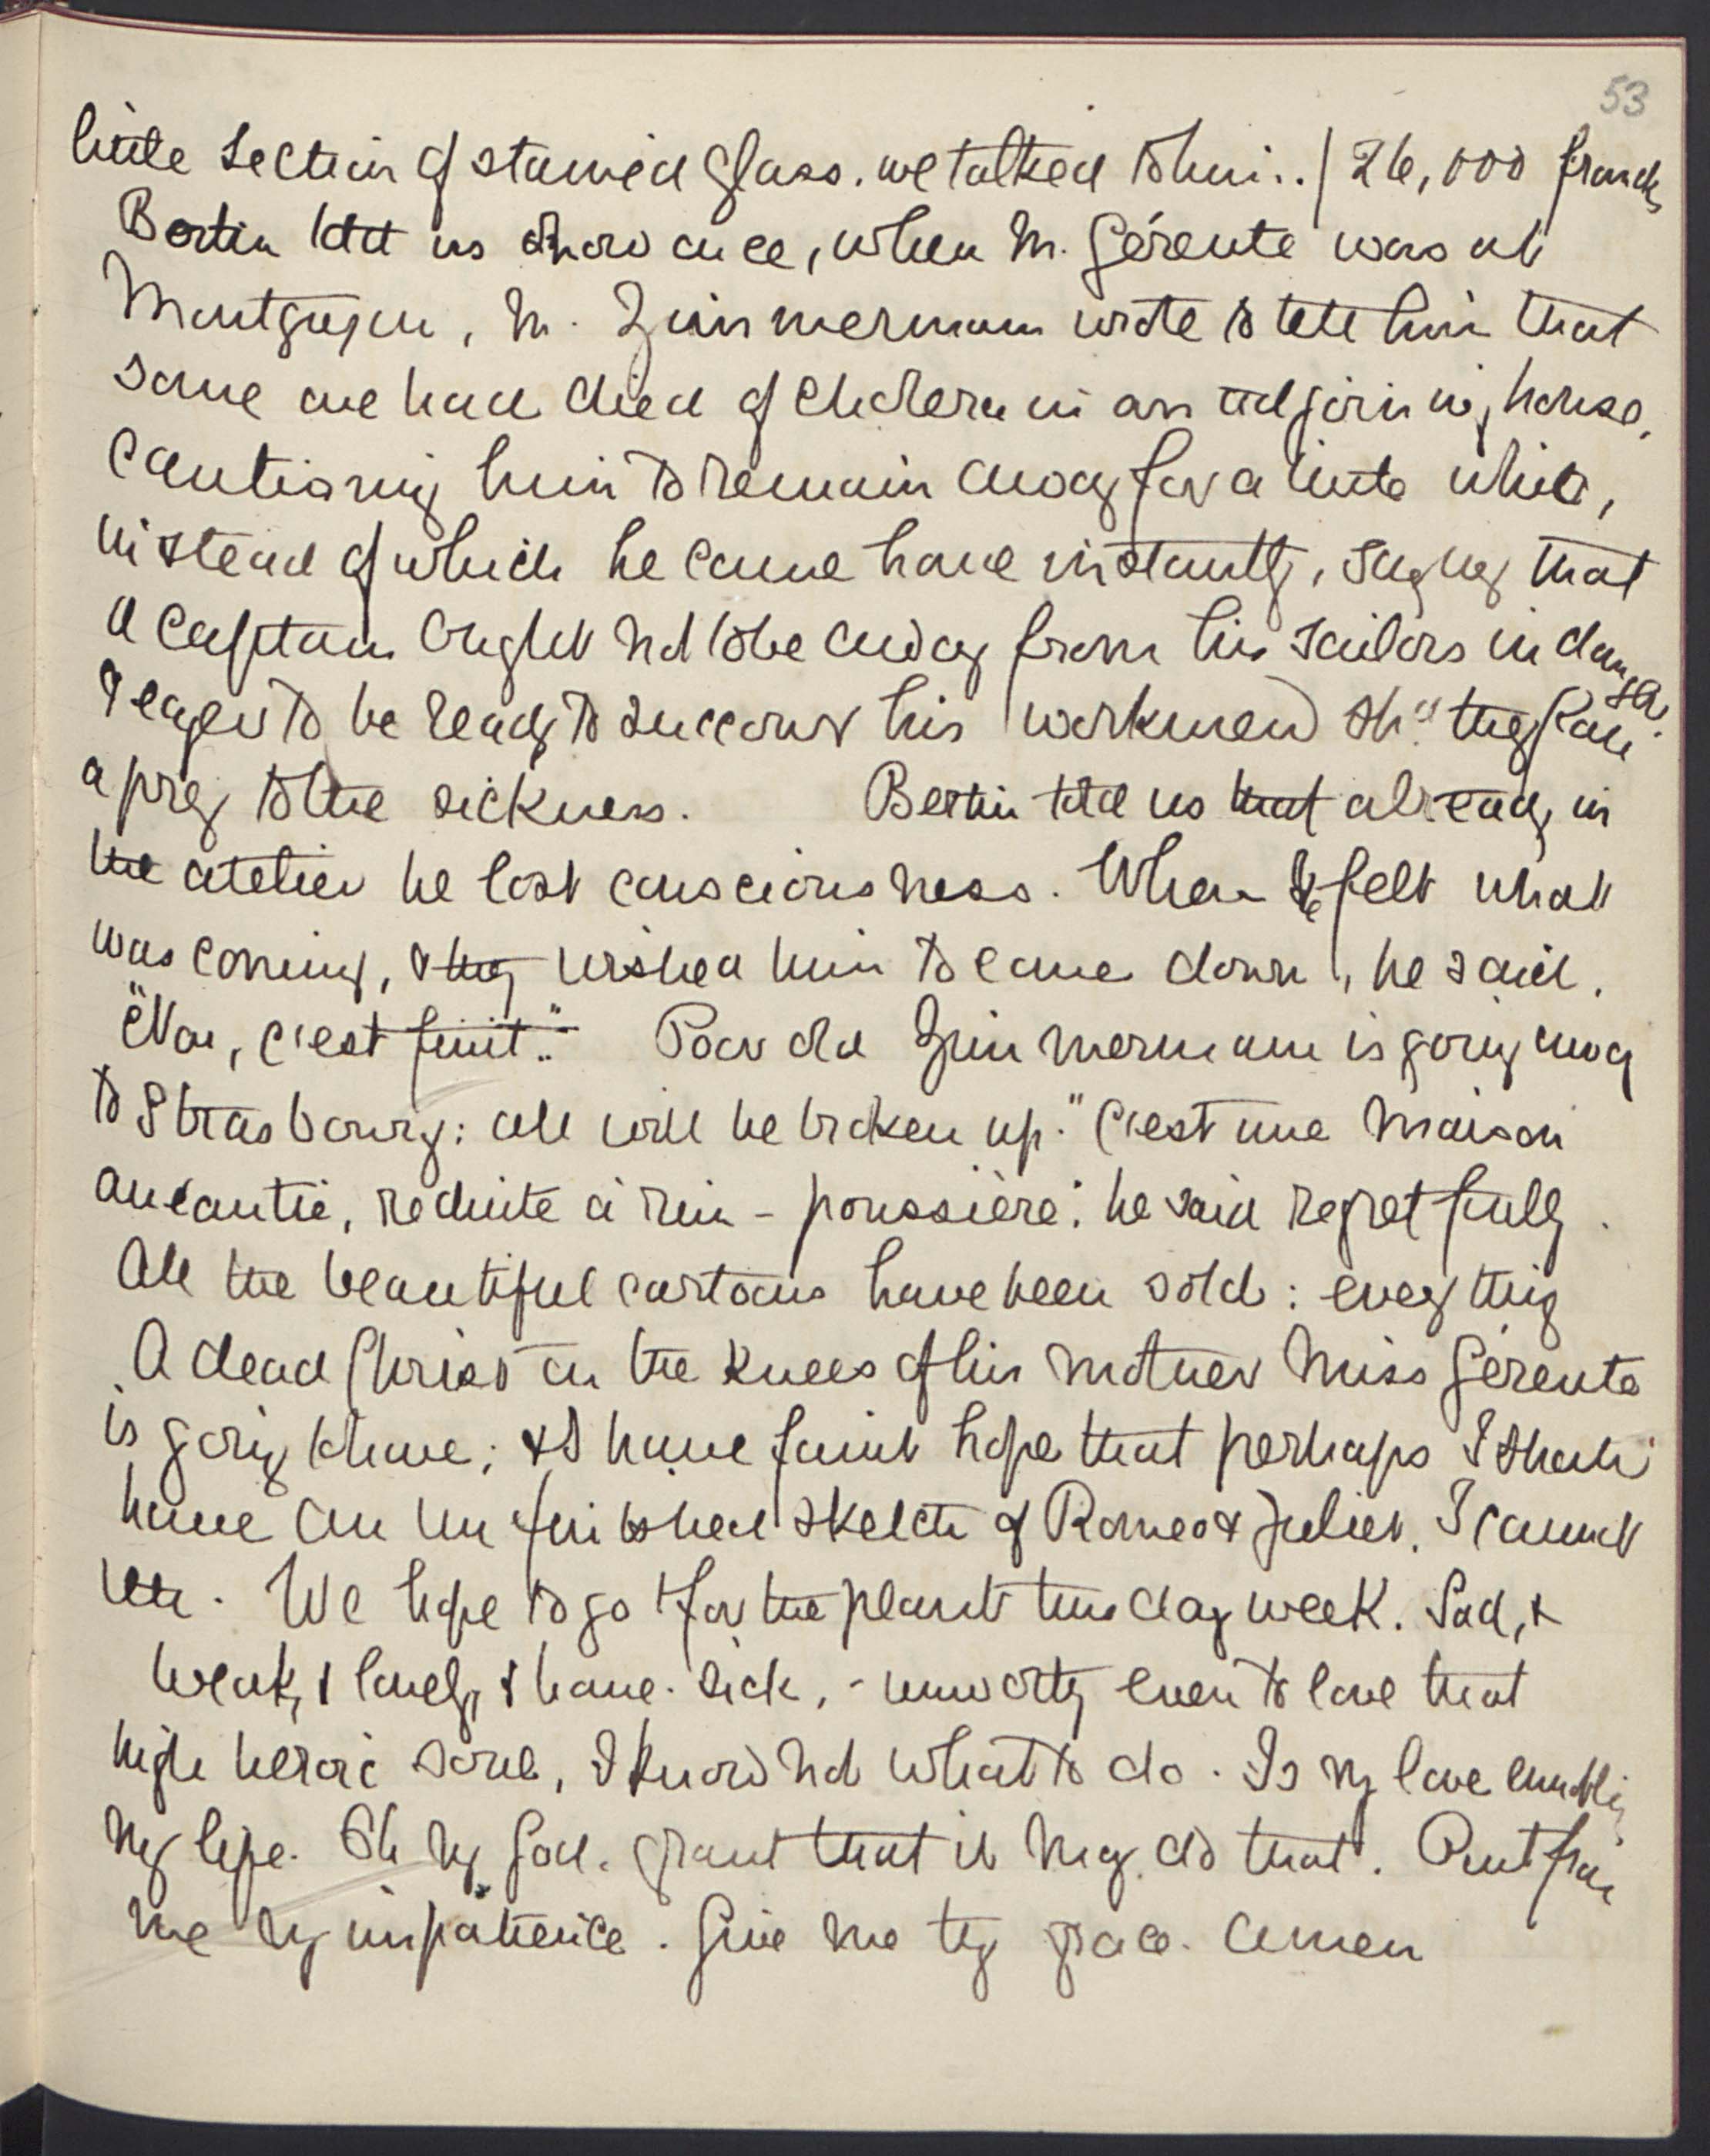 53
little section of stained glass. we talked to him.. / 26,000 francs
Bertin told us how once, when M. Gérente was at
M. Zimmermann wrote to tell him that
some one had died of cholera in an adjoining house,
cautioning him to remain away for a little while,
instead of which he came home instantly, saying that
a captain ought not to be away from his sailors in danger.
& eager to be ready to succour his workmen shd they fall
a prey to the sickness. Bertin told us that already in
the atelier he lost consciousness. When he felt what
was coming, & they wished him to come down, he said.
"Non, c'est finit.." Poor old Zimmermann is going away
to Strasbourg: all will be broken up. "C'est une maison
aneantie, reduite à rien - poussière": he said regretfully.
All the beautiful cartoons have been sold: everything
A dead Christ on the knees of his mother Miss Gérente
is going to have; & I have faint hope that perhaps I shall
have an unfinished sketch of Romeo & Juliet. I cannot
We hope to go for the plants this day week. Sad, &
weak, & lonely, & home-sick, - unworthy even to love that
high heroic soul, I know not what to do. Is my love ennobling
my life. Oh my God. grant that it may do that. Put from
me my impatience. Give me thy grace. Amen